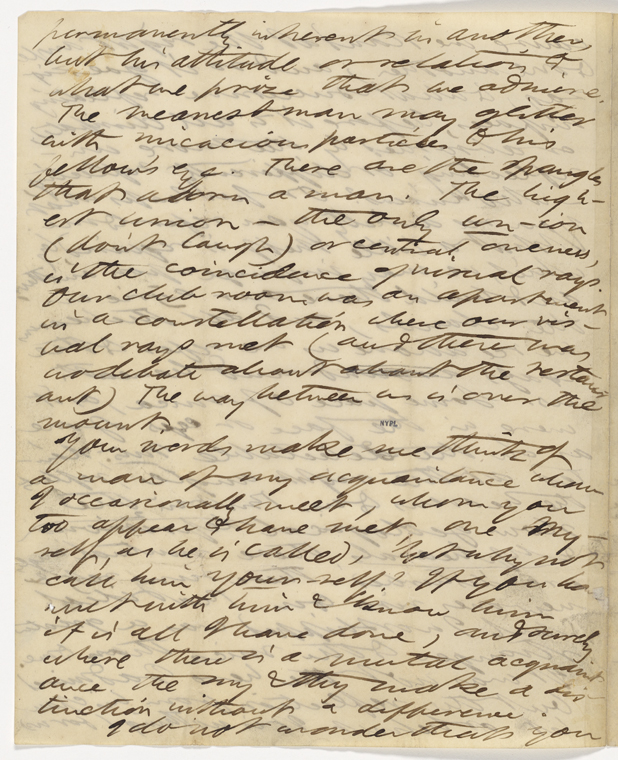 permanently inherent in another,
but his attitude or relation to
what we prize that we admire.
The meanest man may glitter
with micacious particles to his
fellow's eye. These are the spangles
that adorn a man. The high-
est union — the only un-ion
(don't laugh) or central oneness,
is the coincidence of visual rays.
Our club room was an apartment
in a constellation where our vis-
ual rays met (and there was
no debate about about the restaur
ant) The way between us is over the
mount.
NYPL
Your words make me think of
a man of my acquaintance whom
I occasionally meet, whom you
too appear to have met, one My-
self, as he is called, Yet why not
call him Yourself? If you have
met with him & know him
it is all I have done, and surely
where there is a mutual acquaint
ance the my & thy make a dis-
tinction without a difference.
I do not wonder that you